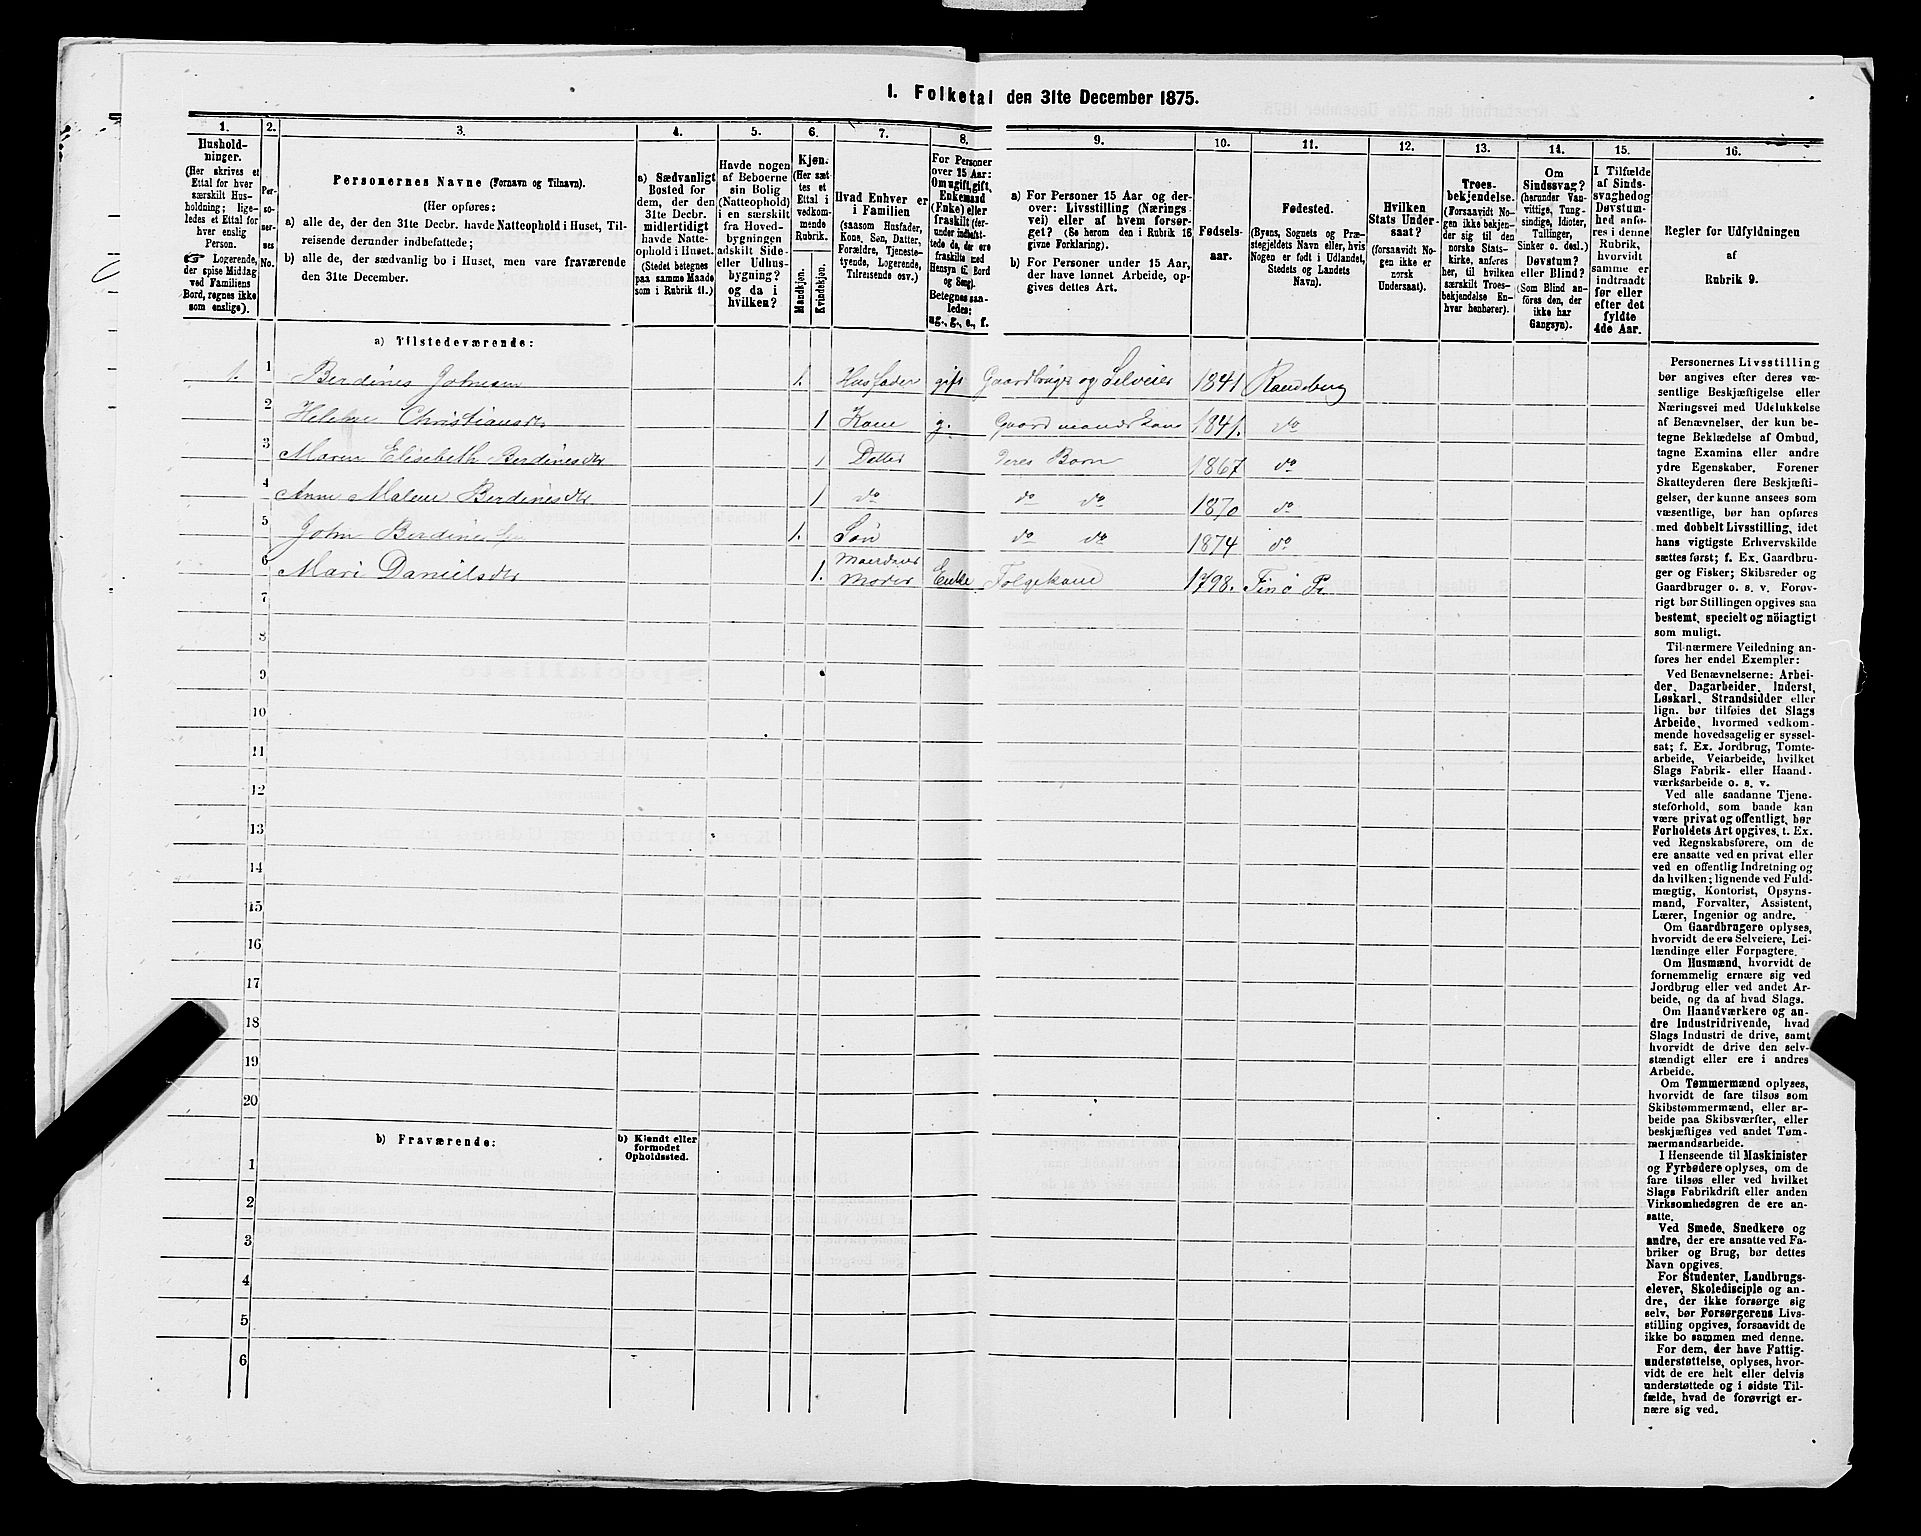 I. Folketal den 31te December 1875.
1. 2. 3. 4. 5. 6. 7. 8. 9. 10. 11. 12. 13. 14. 15. 16.
Hushold-
ninger.
(Her skrives et
Ettal for hver
særskilt Hus-
holdning; lige-
ledes et Ettal for
hver enslig
Person.
☞ Logerende,
der spise Middag
ved Familiens
Bord, regnes ikke
som enslige).
Per-
so-
ner-
nes
No.
Personernes Navne (Fornavn og Tilnavn).
(Her opføres:
a) alle de, der den 31te Decbr. havde Natteophold i Huset, Til-
reisende derunder indbefattede;
b) alle de, der sædvanlig bo i Huset, men vare fraværende
den 31te December.
a) Sædvanligt
Bosted for
dem, der den
31te Decbr.
midlertidigt
havde Natte-
ophold i Huset.
(Stedet betegnes
paa samme Maade
som i Rubrik 11.)
Havde nogen
af Beboerne
sin Bolig
(Natteophold)
i en særskilt
fra Hoved-
bygningen
adskilt Side-
eller Udhus-
bygning?
og da i
hvilken?
Kjøn.
(Her sæt-
tes et
Ettal i
vedkom-
mende
Rubrik.
Mandkjøn.
Kvindekjøn.
Hvad Enhver er
i Familien
(saasom Husfader,
Kone, Søn, Datter,
Forældre, Tjeneste-
tyende, Logerende,
Tilreisende osv.)
For Personer
over 15 Aar:
Om ugift, gift,
Enkemand
(Enke) eller
fraskilt (der-
under indbefat-
tede de, der ere
fraskilte med
Hensyn til Bord
og Seng).
Betegnes saa-
ledes:
ug., g., e., f.
a) For Personer 15 Aar og der-
over: Livsstilling (Nærings-
vei) eller af hvem forsør-
get? (Se herom den i Rubrik 16
givne Forklaring).
b) For Personer under 15 Aar,
der have lønnet Arbeide, op-
gives dettes Art.
Fødsels-
aar.
Fødested.
(Byens, Sognets og Præ-
stegjeldets Navn eller, hvis
Nogen er født i Udlandet,
Stedets og Landets
Navn).
Hvilken
Stats Under-
saat?
(forsaavidt No-
gen ikke er
norsk
Undersaat).
Troes-
bekjendelse.
(Forsaavidt No-
gen ikke bekjen-
der sig til den
norske Stats-
kirke, anføres
her, til hvilken
særskilt Troes-
bekjendelse En-
hver henhører).
Om
Sindssvag?
(herunder Van-
vittige, Tung-
sindige, Idioter,
Tullinger,
Sinker o. desl.)
Døvstum?
eller Blind?
(Som Blind an-
føres den, der
ikke har
Gangsyn).
I Tilfælde
af Sinds-
svaghed og
Døvstum-
hed anfø-
res i denne
Rubrik,
hvorvidt
samme er
indtraadt
før eller
efter det
fyldte
4de Aar.
Regler for Udfyldningen
af
Rubrik 9.
a) Tilstedeværende:
1. 1 Berdines Johnsen 1. Husfader gift Gaardbruger og Selveier 1841 Randeberg
2 Helene Christiansdr 1 Kone g. Gaardmandskone 1841. do
3 Maren Elisebeth Berdinesdr 1 Datter deres Barn 1867 do
4 Anne Malene Berdinesdr 1 do do do 1870 do
5 John Berdines 1. Søn do do 1874 do
6 Mari Danielsdr 1. Moder Enke Folgekone 1798. Finø Pr
7
8
9
10
11
12
13
14
15
16
17
18
19
20
b) Fraværende:
b) Kjendt eller
formodet
Opholdssted.
1
2
3
4
5
6
Personernes Livsstilling
bør angives efter deres væ-
sentlige Beskjæftigelse eller
Næringsvei med Udelukkelse
af Benævnelser, der kun be-
tegne Beklædelse af Ombud,
tagne Examina eller andre
ydre Egenskaber. Forener
Skatteyderen flere Beskjæfti-
gelser, der kunne ansees som
væsentlige, bør han opføres
med dobbelt Livsstilling, idet
hans vigtigste Erhvervskilde
sættes først; f. Ex. Gaardbru-
ger og Fisker; Skibsreder og
Gaardbruger o. s. v. Forøv-
rigt bør Stillingen opgives saa
bestemt, specielt og nöiagtigt
som muligt.
Til nærmere Veiledning an-
føres her endel Exempler:
Ved Benævnelserne: Arbei-
der, Dagarbeider, Inderst,
Løskarl, Strandsidder eller
lign. bør tilføies det Slags
Arbeide, hvormed vedkom-
mende hovedsagelig er syssel-
sat; f. Ex. Jordbrug, Tomte-
arbeide, Veiarbeide, hvilket
Slags Fabrik- eller Haand-
værksarbeide o. s. v.
Ved alle saadanne Tjene-
steforhold, som baade kan
være privat og offentligt, bør
Forholdets Art opgives, t. Ex.
ved Regnskabsførere, om de
ere ansatte ved en privat eller
ved en offentlig Indretning og
da hvilken; lignende ved Fuld-
mægtig, Kontorist, Opsyns-
mand, Forvalter, Assistent,
Lærer, Ingeniør og andre.
Om Gaardbrugere oplyses,
hvorvidt de ere Selveiere, Lei-
lændinge eller Forpagtere.
Om Husmænd, hvorvidt de
fornemmelig ernære sig ved
Jordbrug eller ved andet Ar-
beide, og da af hvad Slags.
Om Haandværkere og an-
dre Industridrivende, hvad
Slags Industri de drive, samt
hvorvidt de drive den selv-
stændigt eller ere i andres
Arbeide.
Om Tømmermænd oplyses,
hvorvidt de fare tilsøs som
Skibstømmermænd, eller ar-
beide paa Skibsværfter, eller
beskjæftiges ved andet Tøm-
mermandsarbeide.
I Henseende til Maskinister
og Fyrbødere oplyses, om de
fare tilsøs eller ved hvilket
Slags Fabrikdrift eller anden
Virksomhedsgren de ere an-
satte.
Ved Smede, Snedkere og
andre, der ere ansatte ved Fa-
briker og Brug, bør dettes
Navn opgives.
For Studenter, Landbrugs-
elever, Skoledisciple og an-
dre, der ikke forsørge sig
selv, bør Forsørgerens Livs-
stilling opgives, forsaavidt de
ikke bo sammen med denne.
For dem, der have Fattig-
understøttelse, oplyses, hvor-
vidt de ere helt eller delvis
understøttede og i sidste Til-
fælde, hvad de forøvrigt er-
nære sig ved.